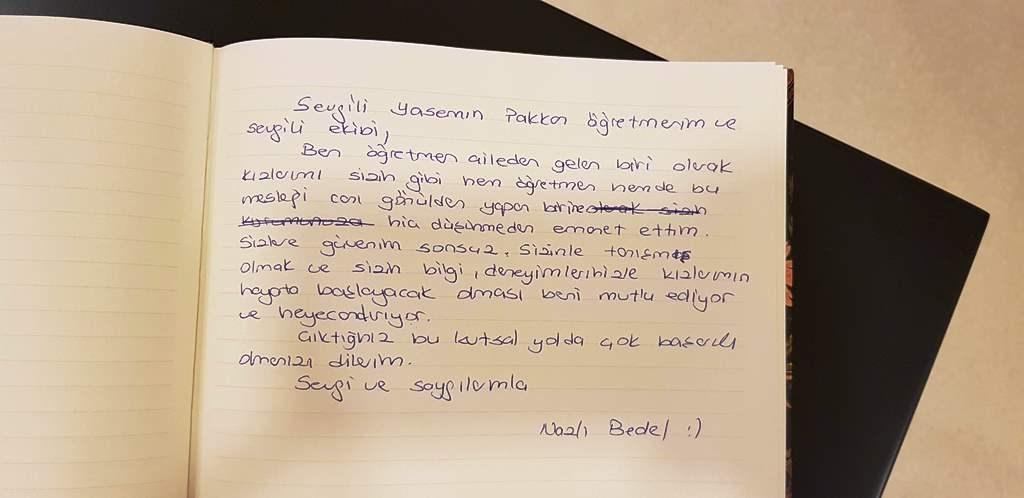 Sevgili Yasemin Pakkan öğretmenim ve
sevgili ekibi,
Ben öğretmen aileden gelen biri olarak
kızlarımı sizin gibi hem öğretmen hemde bu
mesleği canı gönülden yapan birine olarak sizin
kurumunuza hiç düşünmeden emanet ettim.
Sizlere güvenim sonsuz. Sizinle tanışmış
olmak ve sizin bilgi, deneyimlerinizle kızlarımın
hayata başlayacak olması beni mutlu ediyor
ve heyecandırıyor.
Çıktığınız bu kutsal yolda çok başarılı
olmanızı dilerim.
Sevgi ve saygılarımla
Nazlı Bedel :)